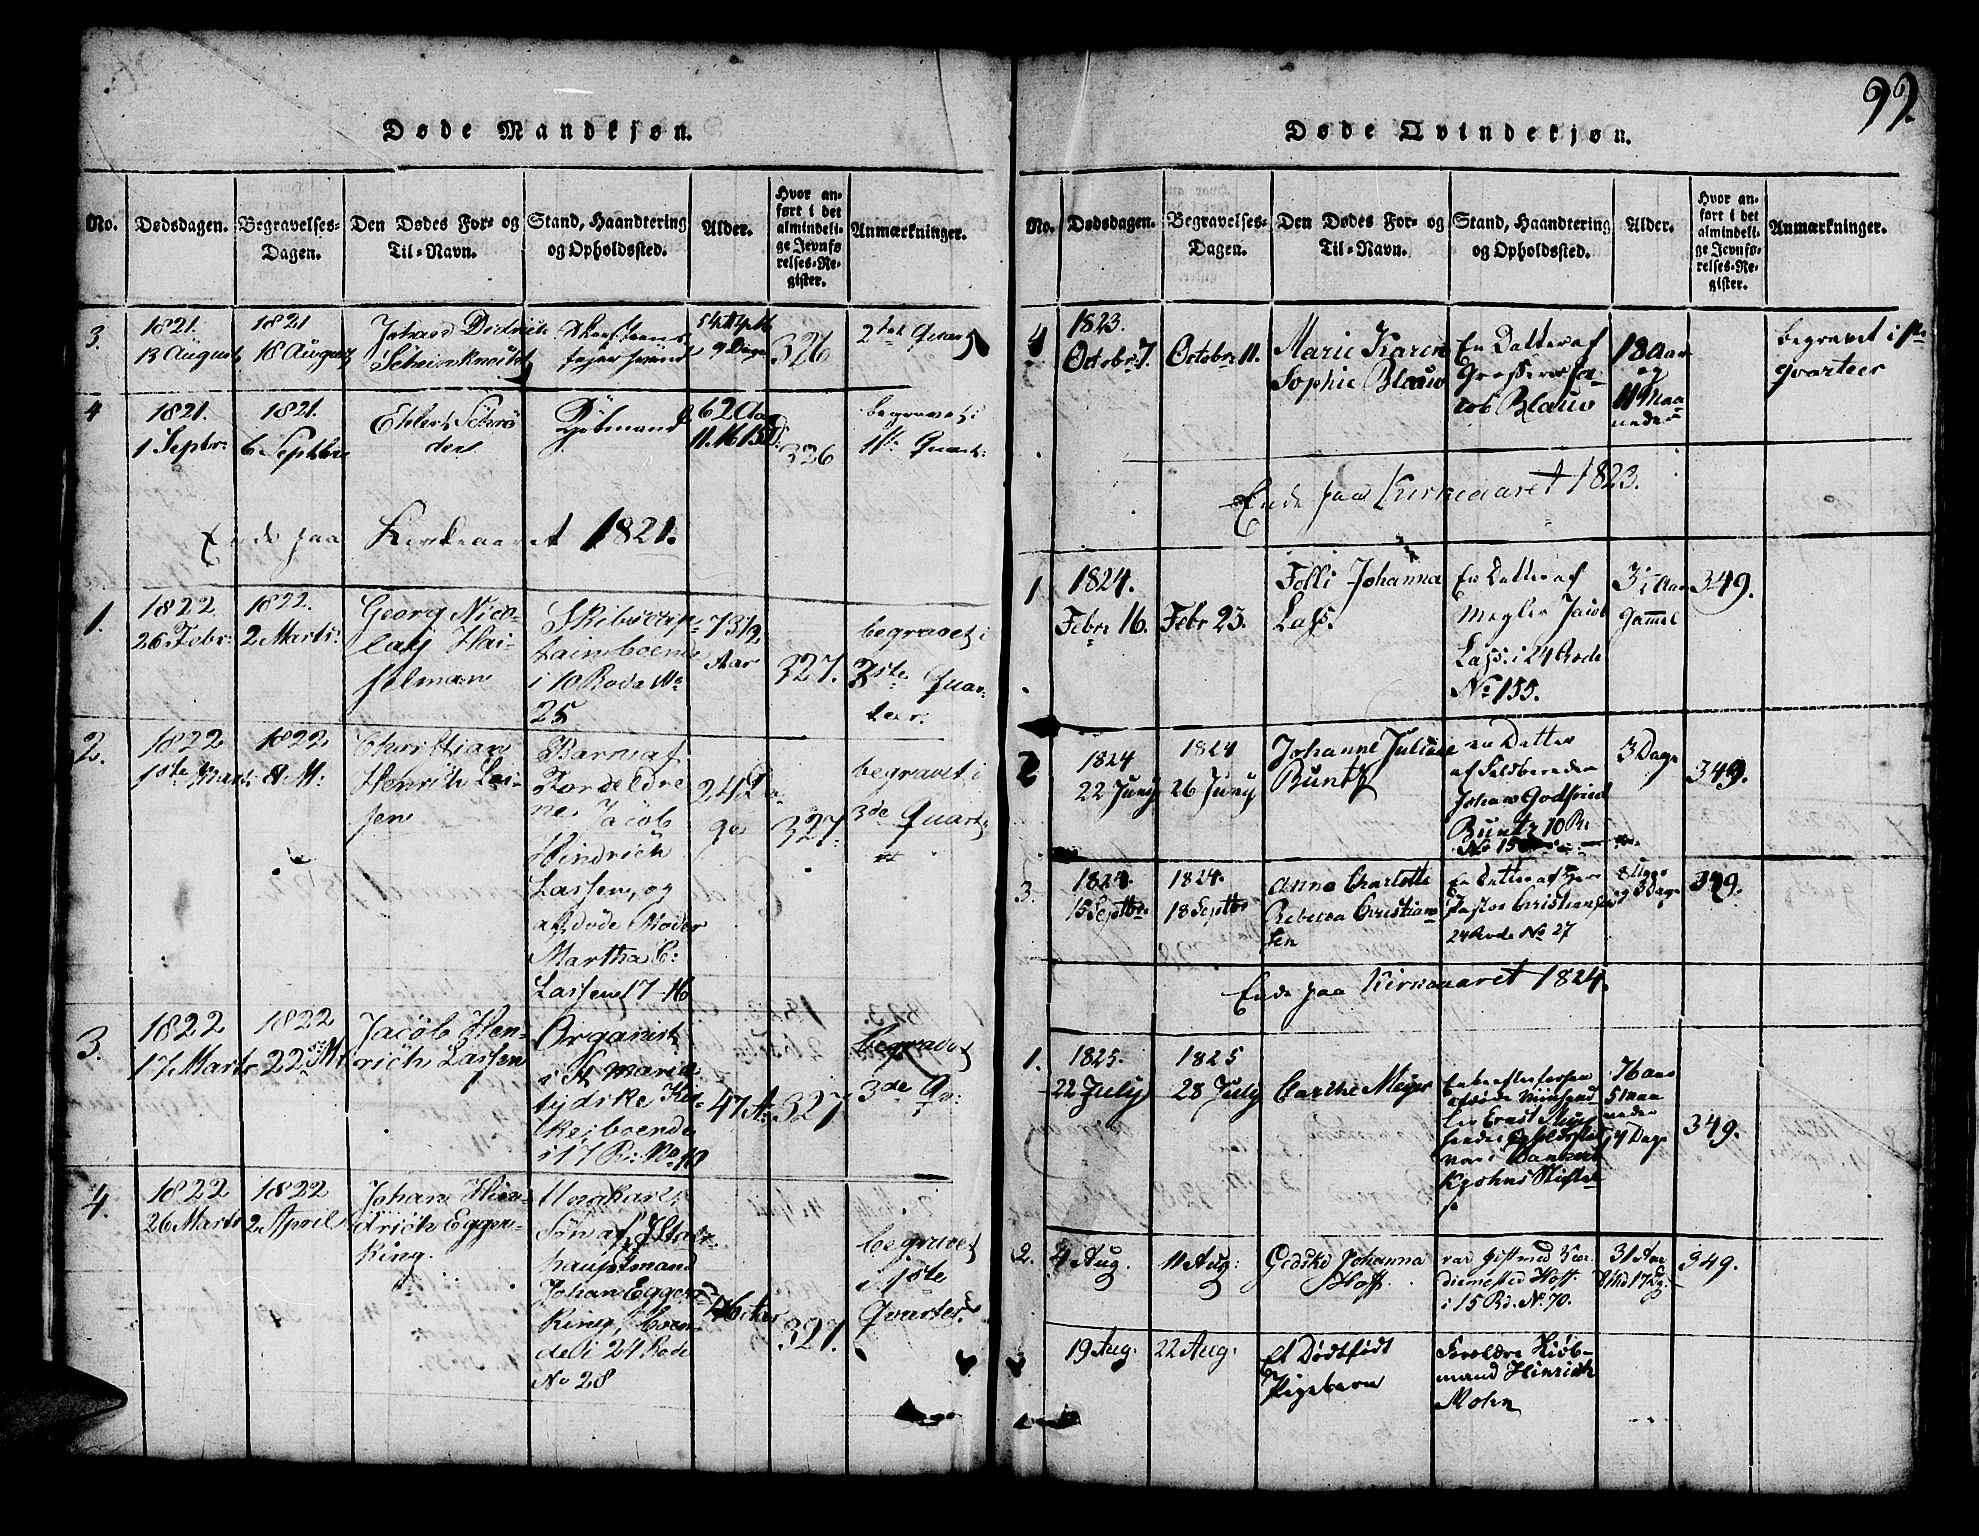 99.
Døde Mandkjøn.
No.
Dødsdagen.
Begravelses-
Dagen.
Den Dødes For- og
Til-Navn.
Stand, Haandtering
og Opholdssted.
Alder.
Hvor an-
ført i det
almindeli-
ge Jevnfø
relses-Re-
gister.
Anmærkninger.
3.
1821.
13 August
1821
18 August
Johan
326
2det Quart
4
1821.
1 Septbr:
1821.
6 Septbr
Ehlert Schrø
der
Kjøbmand
62 Aar
326
begravet i
1ste Quart:
Ende paa Kirkeaaret 1821.
1.
1822
26 Febr:
1822.
2 Marts:
Georg Nico-
laij Hai-
selman
Skibscap-
tain boende
i 10 Rode No
25
73½
Aar
327.
begravet i
3ste Quar-
teer.
2.
1822
1ste Marts
1822
8 M:
Christian
Henrich Las-
sen
Barn af
Forældre
ne Jacob
Hindrich
Lassen, og
afdøde Moder
Martha C:
Lassen 17-16
24 Da-
ge
327.
begravet i
3de Quart
3.
1822
17 Marts
1822
22 M:
Jacob Hen-
rich Lassen
Organist
i St Maria
tydske Kir-
ke, boende
i 17 R: No 10
47 A:
327
begravet
3de Qv:
4.
1822
26 Marts
1822
2 April
Johan Hin-
drich Eggen-
king.
Ungkarl,
Søn af
hauptmand
Johan Eggen-
king, boen-
de i 24 Rode
No 28
327.
begravet
i 1ste
Qvarter.
Døde Qvindekjøn.
No.
Dødsdagen.
Begravelses-
Dagen.
Den Dødes For- og
Til-Navn.
Stand, Haandtering
og Opholdssted.
Alder.
Hvor an-
ført i det
almindeli-
ge Jevnfø-
relses-Re-
gister.
Anmærkninger.
4
1823.
Octobr 7.
Octobr 11.
Marie Karen
Sophie Blauw
En Datter af
Grosserer Ja-
cob Blauw
18 Aar
og
11 Maa-
neder
begravet i 1ste
qvarteer
Ende paa Kirkeaaret 1823.
1
1824.
Febr: 16.
Febr 23.
Folli Johanna
Lass.
En Datter af
Megler Jacob
Lass. i 24 Rode
No 155.
3½ Aar
Gammel
349.
2
1824
22 Juny
1824
26 Juny
Johanne Juliane
Buntz
en Datter
af Feldbereder
Johan Godfried
Buntz 10 R:
No 15
3 Dage
349.
3.
1824.
15 Septbr
1824.
18 Septbr
Anna Charlotte
Rebecca Christian-
sen
En Datter af Herr
Pastor Christiansen
24 Rode No 27
8 Uger
og 3 Dage
349.
Ende paa Kirkeaaret 1824.
1.
1825.
22 July
1825
28 July
Carthe Meyer
76 Aar
5 Maa-
neder
14 Dage
349.
2.
4 Aug.
11 Aug:
Gedske Johanna
Hoff.
var gift med Vær-
diemested Hoff.
i 15 Rd. No. 70.
31 Aar
349.
19 Aug.
22 Aug:
Et Dødfødt
Pigebarn
Forældre Kiøb-
mand Hinrich
Mohn